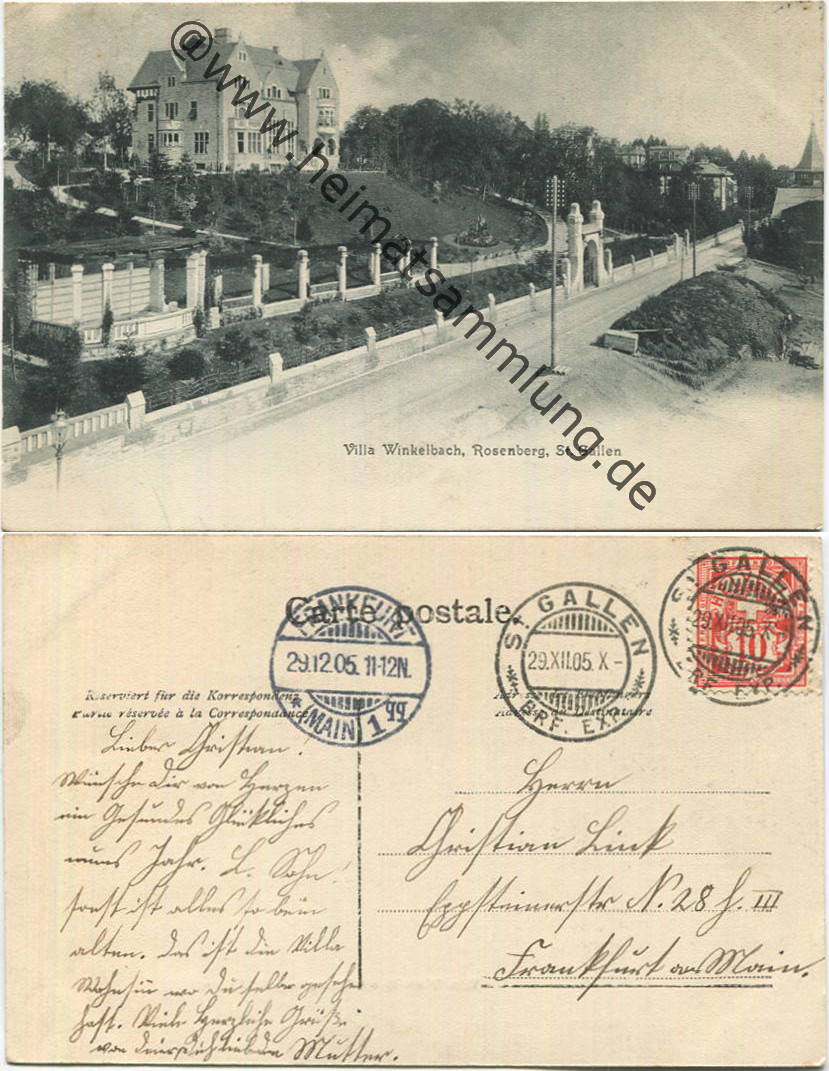 @www.heimatsammlung.de
Villa Winkelbach, Rosenberg, St. Gallen
Carte postale.
FRANKFURT
29.12.05. 11-12N.
* (MAIN) 1 gg
ST. GALLEN
29.XII.05. X-
BRF. EXP.
ST. GALLEN
29.XII.05. X-
BRF. EXP.
10
Reserviert für die Korrespondenz
Partie réservée à la Correspondance
Adresse du Destinataire
Lieber Christian!
Wünsche Dir von Herzen
ein Gesundes Glückliches
neues Jahr. L. Sohn!
sonst ist alles so beim
alten. Das ist die Villa
wo Du selber
hast. Viele Herzliche Grüße
von Mutter.
Herrn
Christian Link
Eppsteinerstr N. 28 H. III
Frankfurt a Main.